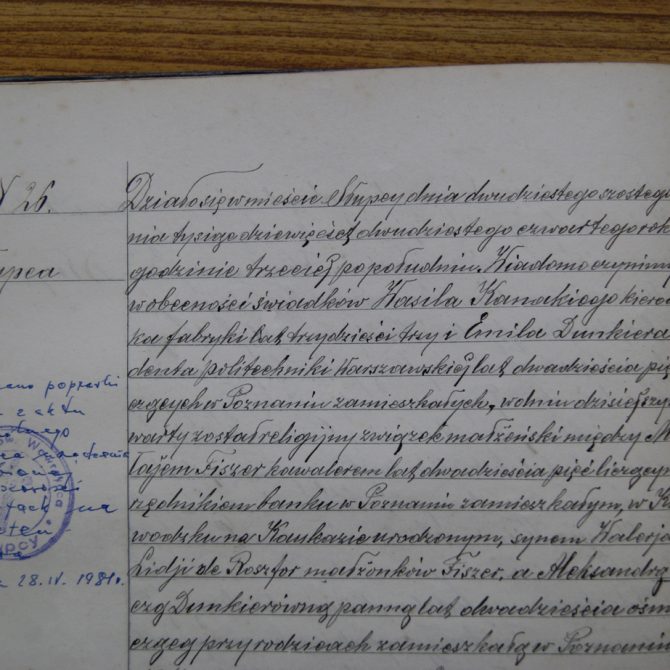 N 26.
Działo się w mieście Słupcy dnia dwudziestego szóstego
nia tysiąc dziewięćset dwudziestego czwartego rok
godzinie trzeciej popołudniu. Wiadomo czynimy
w obecności świadków Wasila Kanakiego kiero
ka fabryki lat trzydzieści trzy i Emila Dunkiera
denta politechniki Warszawskiej lat dwadzieścia pię
czących w Poznaniu zamieszkałych, w dniu dzisiejszym
warty został religijny związek małżeński między M
łajem Fiszer kawalerem lat dwadzieścia pięć liczącym
rzędnikiem banku w Poznaniu zamieszkałym, w K
wodsku na Kaukazie urodzonym, synem Walerja
Lidji de Roszfor małżonków Fiszer, a Aleksandrą
czą Dunkierówną panną lat dwadzieścia ośm
czącą przy rodzicach zamieszkałą w Poznaniu
upca
poprawki
z aktu
na
28.IV.1981r.